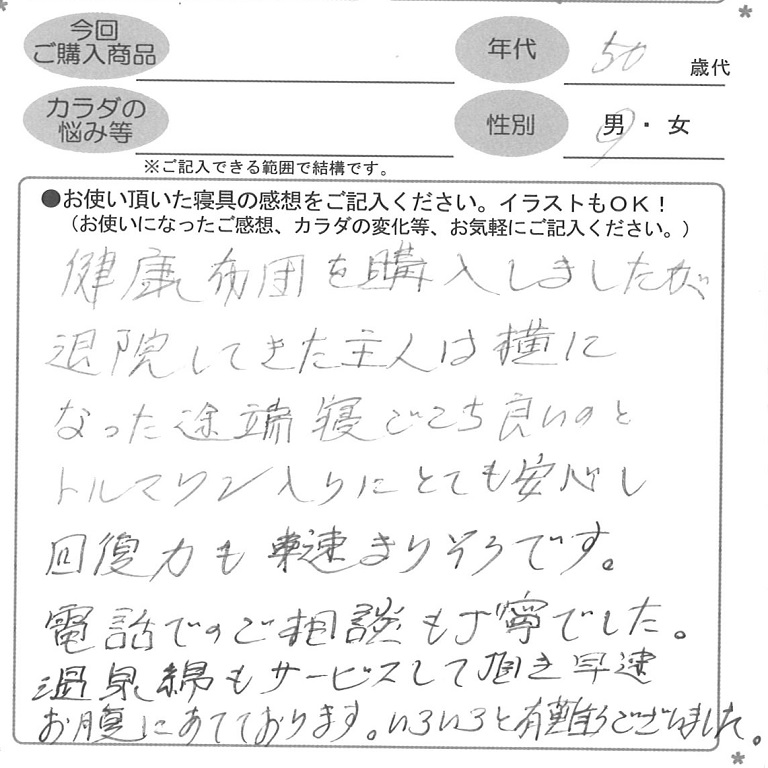 今回
ご購入商品
年代 50 歳代
カラダの
悩み等
性別 男・女
※ご記入できる範囲で結構です。
●お使い頂いた寝具の感想をご記入ください。イラストもOK!
(お使いになったご感想、カラダの変化等、お気軽にご記入ください。)
健康布団を購入しましたが
退院してきた主人は横に
なった途端寝ごこち良いのと
トルマリン入りにとても安心し
回復力も速まりそうです。
電話でのご相談も丁寧でした。
温泉綿もサービスして頂き早速
お腹にあてております。いろいろと有難うございました。